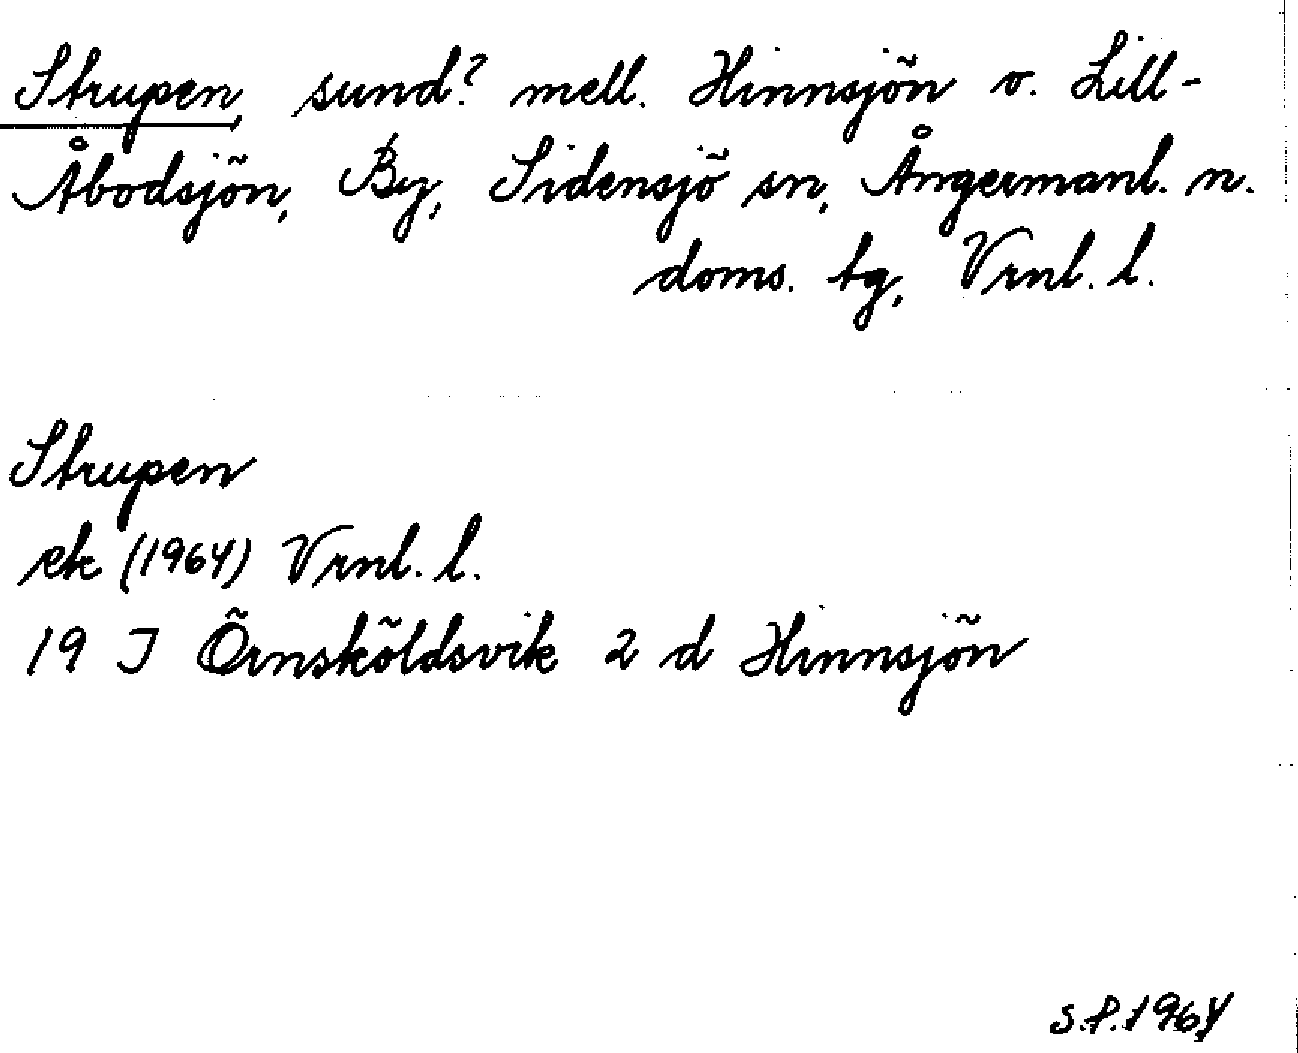 Strupen, sund? mell. Hinnsjön o. Lill-
Åbodsjön, By, Sidensjö sn, Ångermanl. n.
doms. tg, Vrnl. l.
Strupen
ek (1964) Vrnl. l.
19 J Örnsköldsvik 2 d Hinnsjön
S.P.1964